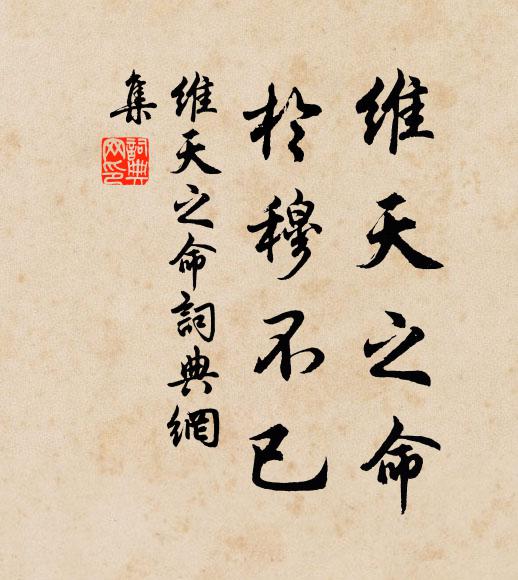 维天之命
於穆不已
维天之命詞典網
集
詞典
网印